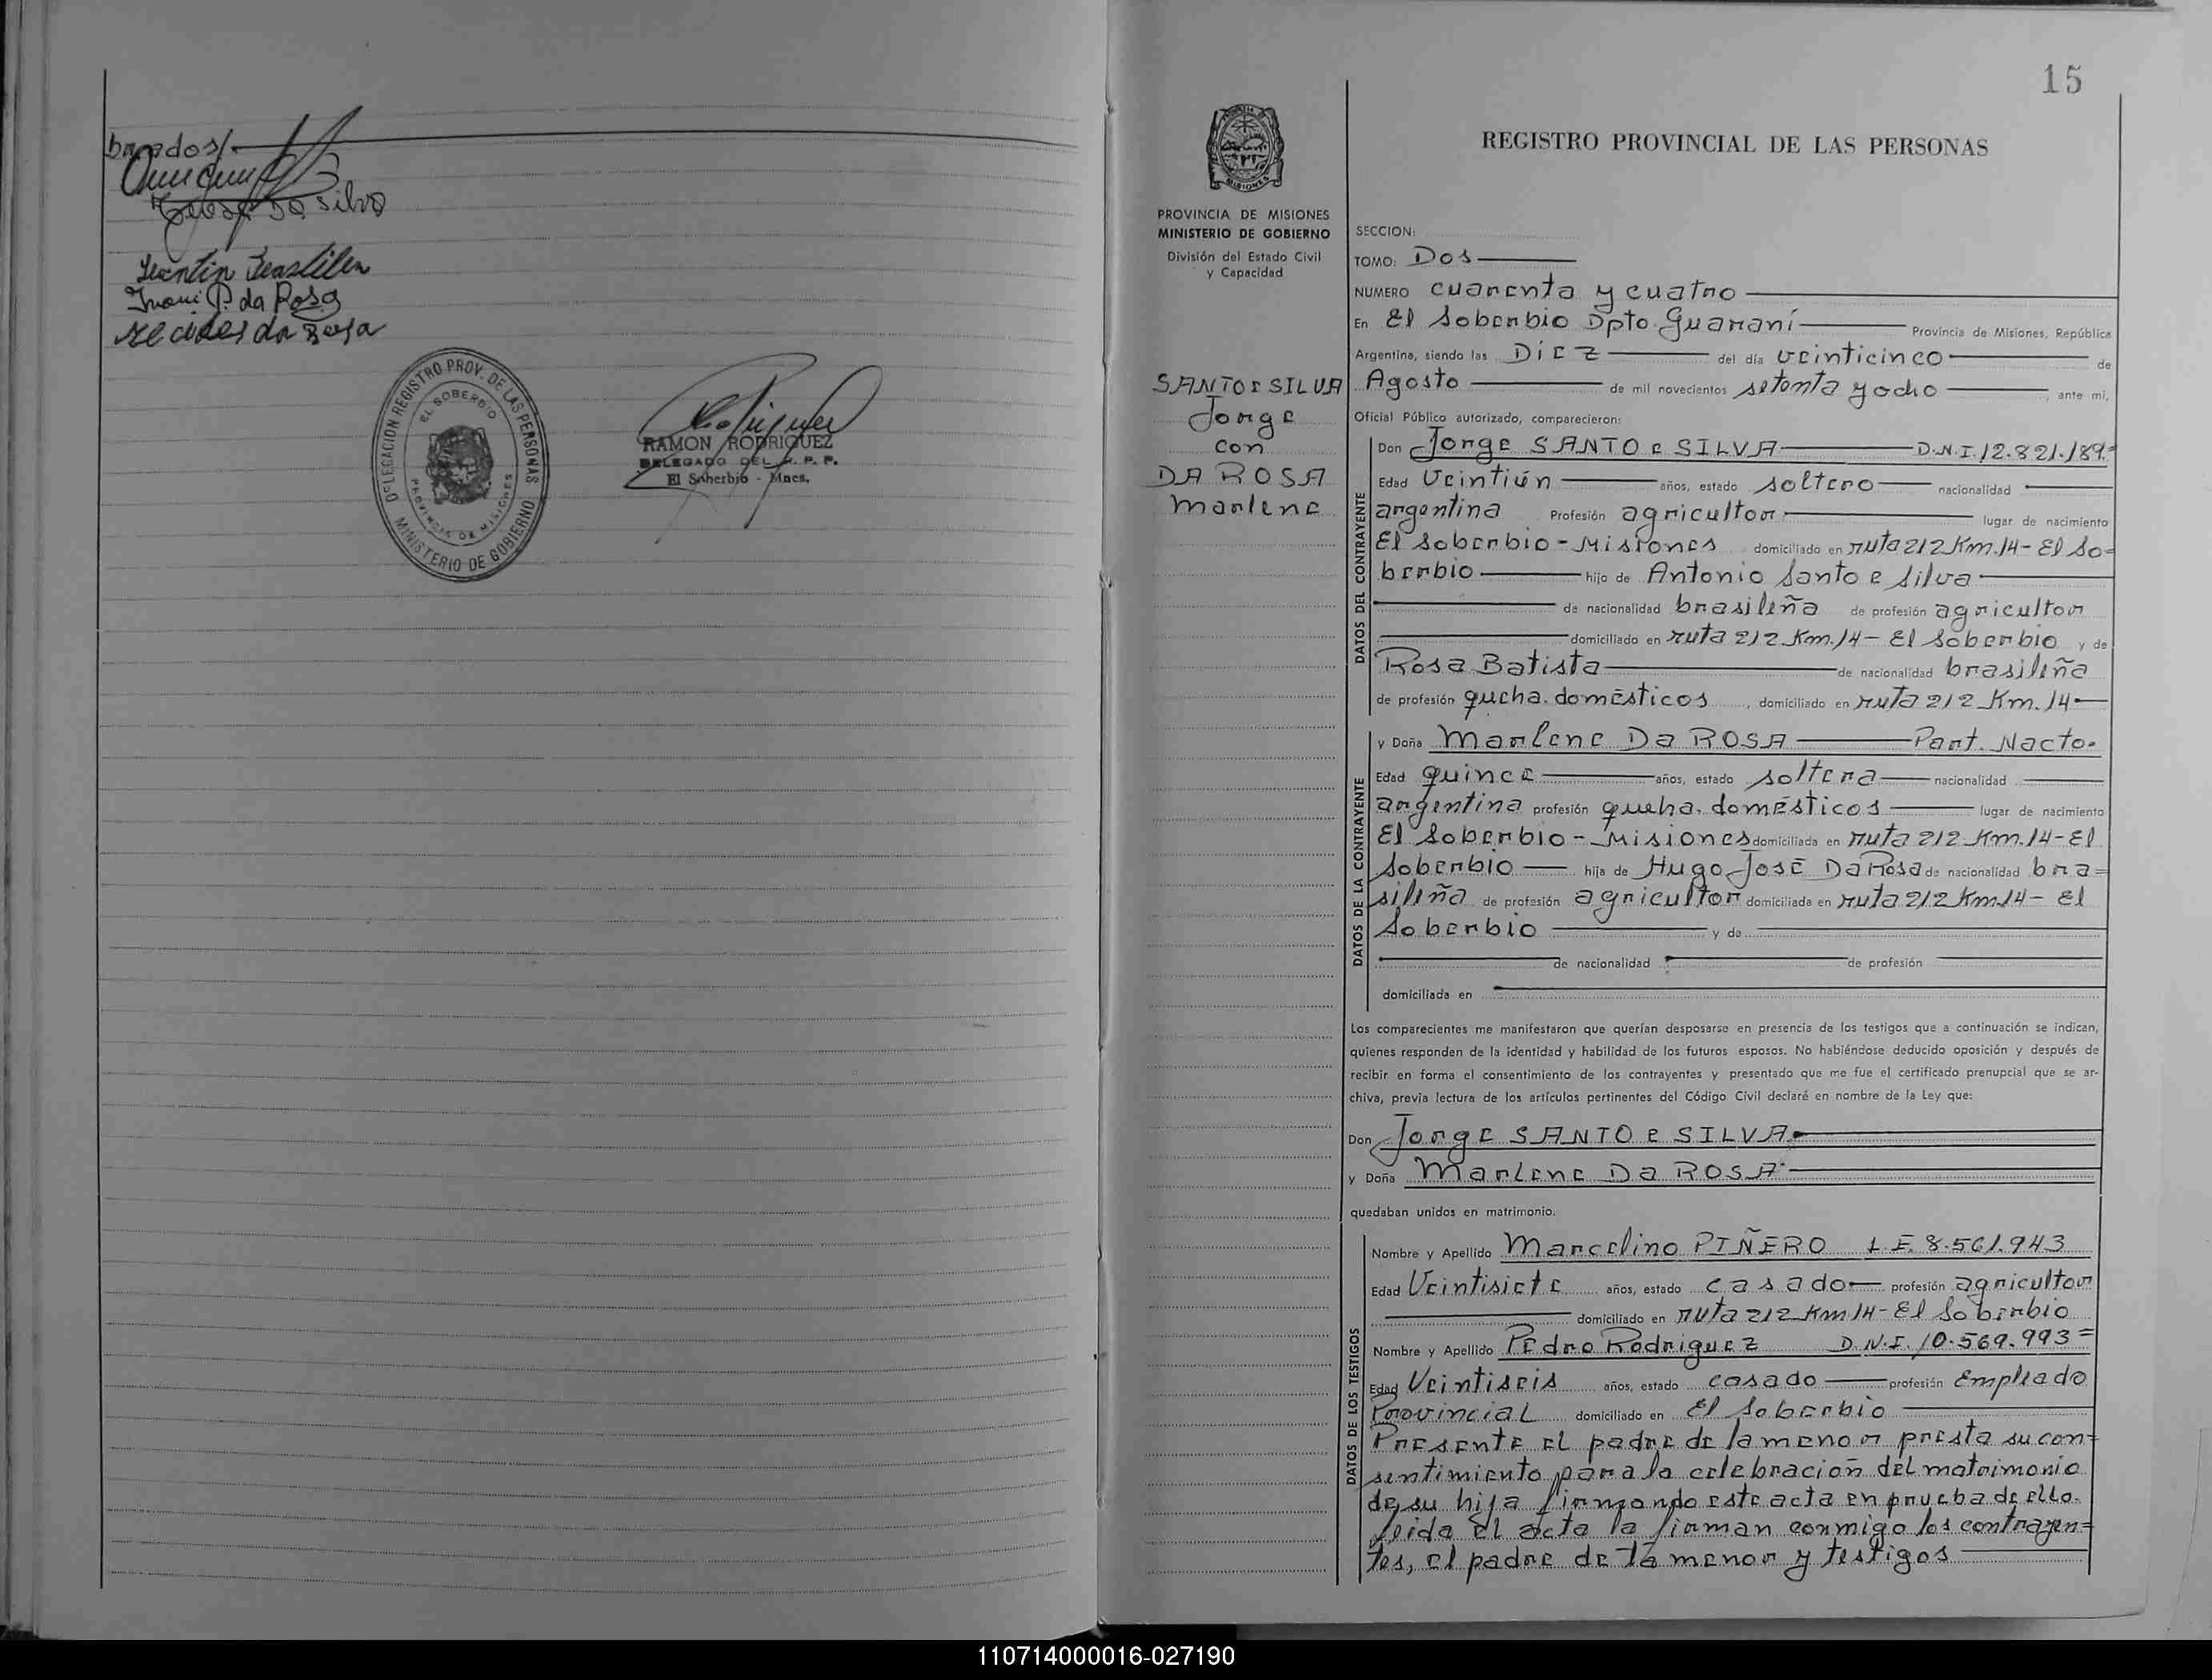 brados/.
Teresa Da Silva
Ivani P. da Rosa
Alcides da Rosa
DELEGACION REGISTRO PROV. DE LAS PERSONAS
EL SOBERBIO
PROVINCIA DE MISIONES
MINISTERIO DE GOBIERNO
RAMON RODRIGUEZ
DELEGADO DEL R. P. P.
El Soberbio - Mnes.
15
MISIONES
PROVINCIA DE MISIONES
MINISTERIO DE GOBIERNO
División del Estado Civil
y Capacidad
SANTO E SILVA
Jorge
con
DA ROSA
Marlene
REGISTRO PROVINCIAL DE LAS PERSONAS
SECCION:
TOMO: Dos
NUMERO cuarenta y cuatro
En El Soberbio Dpto. Guaraní Provincia de Misiones, República
Argentina, siendo las Diez del día veinticinco de
Agosto de mil novecientos setenta y ocho, ante mí,
Oficial Público autorizado, comparecieron:
DATOS DEL CONTRAYENTE
Don Jorge SANTO e SILVA D.N.I. 12.821.189=
Edad Veintiún años, estado soltero nacionalidad
argentina Profesión agricultor lugar de nacimiento
El Soberbio - Misiones domiciliado en ruta 212 Km. 14 - El So=
berbio hijo de Antonio Santo e Silva
de nacionalidad brasileña de profesión agricultor
domiciliado en ruta 212 Km. 14 - El Soberbio y de
Rosa Batista de nacionalidad brasileña
de profesión queha. domésticos, domiciliado en ruta 212 Km. 14
DATOS DE LA CONTRAYENTE
y Doña Marlene Da ROSA Part. Nacto.
Edad quince años, estado soltera nacionalidad
argentina profesión queha. domésticos lugar de nacimiento
El Soberbio - Misiones domiciliada en ruta 212 Km. 14 - El
Soberbio hija de Hugo José Da Rosa de nacionalidad bra=
sileña de profesión agricultor domiciliada en ruta 212 Km. 14 - El
Soberbio y de
de nacionalidad de profesión
domiciliada en
Los comparecientes me manifestaron que querían desposarse en presencia de los testigos que a continuación se indican,
quienes responden de la identidad y habilidad de los futuros esposos. No habiéndose deducido oposición y después de
recibir en forma el consentimiento de los contrayentes y presentado que me fue el certificado prenupcial que se ar-
chiva, previa lectura de los artículos pertinentes del Código Civil declaré en nombre de la Ley que:
Don Jorge SANTO e SILVA
y Doña Marlene Da ROSA
quedaban unidos en matrimonio.
DATOS DE LOS TESTIGOS
Nombre y Apellido Marcelino PIÑERO L.E. 8.561.943
Edad Veintisiete años, estado casado profesión agricultor
domiciliado en ruta 212 Km 14 - El Soberbio
Nombre y Apellido Pedro Rodriguez D.N.I. 10.569.993=
Edad Veintiseis años, estado casado profesión Empleado
Provincial domiciliado en El Soberbio
Presente el padre de la menor presta su con=
sentimiento para la celebración del matrimonio
de su hija firmando este acta en prueba de ello.
leida el acta la firman conmigo los contrayen=
tes, el padre de la menor y testigos
110714000016-027190